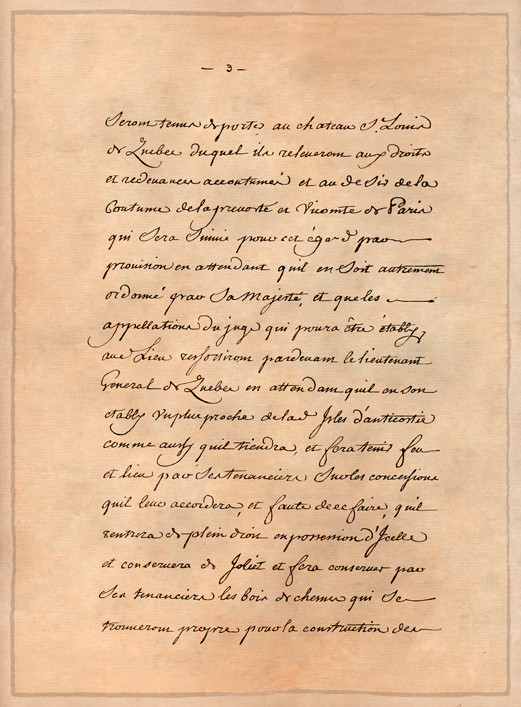 — 3 —
Seront tenus de porter au chateau St. Louis
de Quebec duquel ils releveront aux droits
et redevances accoutumés et au desir de la
Coutume de la prevosté et Vicomte de Paris
qui sera Suivie pour cet égard par
provision en attendant quil en soit autrement
ordonné par Sa Majesté, et que les
appellations du juge qui poura être établÿ
au d Lieu ressortiront pardevant le lieutenant
General de Quebec en attendant quil en soit
etablÿ un plus proche de la d Isles d'anticostie
comme aussÿ quil tiendra, et fera tenir feu
et lieu par Ses tenanciers Sur les concessions
quil leur accordera, et faute de ce faire, quil
rentrera de plein droit en possession d'Icelle
et conservera de Joliet et fera conserver par
Ses tenanciers les bois de chesnes qui Se
trouveront propre pour la construction des